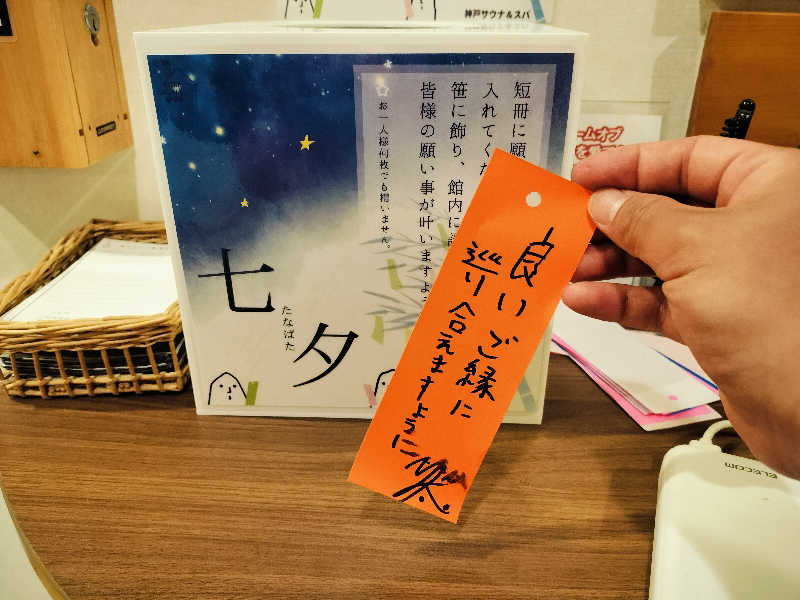 神戸サウナ&スパ
短冊に願
入れてくだ
笹に飾り、館内に
皆様の願い事が叶いますよう
お一人様何枚でも構いません。
七夕
たなばた
良いご縁に
巡り合えますように
ELECOM